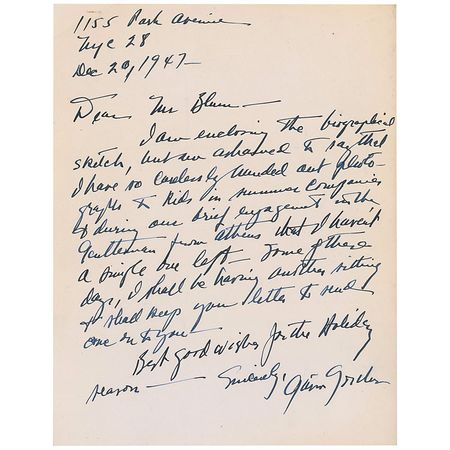 1155 Park Avenue
NYC 28
Dec 20, 1947
Dear Mr Blum -
I am enclosing the biographical
sketch, but am ashamed to say that
I have so carelessly handed out photo-
graphs to kids in summer companies
& during our brief engagement in "The
Gentleman from Athens" that I haven't
a single one left. Some of these
days, I shall be having another sitting
& shall keep your letter to send
one on to you.
Best good wishes for the Holiday
season - Sincerely, Gavin Gordon